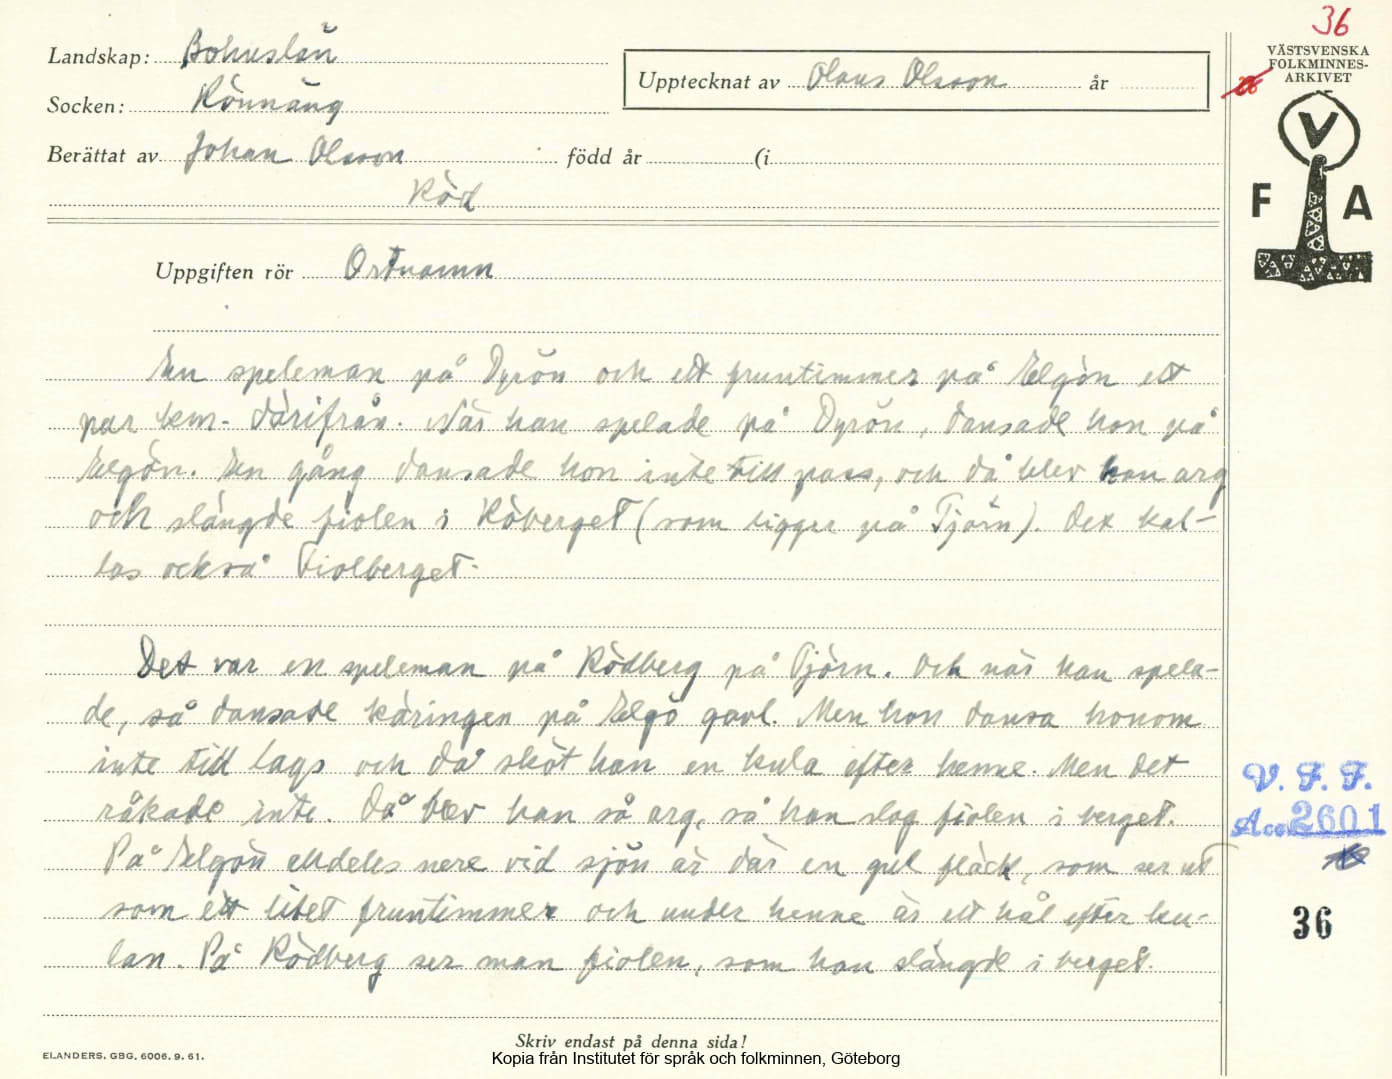 36
VÄSTSVENSKA
FOLKMINNES-
ARKIVET
V
F A
Landskap: Bohuslän
Socken: Rönnäng
Upptecknat av Olaus Olsson år
Berättat av Johan Olsson född år (i
Röd
Uppgiften rör Ortnamn
En speleman på Dyrön och ett fruntimmer på Elgön ett
par km. därifrån. När han spelade på Dyrön, dansade hon på
Elgön. En gång dansade hon inte till pass, och då blev han arg
och slängde fiolen i Röberget (som ligger på Tjörn). Det kal-
las också Fiolberget.
Det var en speleman på Rödberg på Tjörn. Och när han spela-
de, så dansade käringen på Elgö gavl. Men hon dansa honom
inte till lags och då sköt han en kula efter henne. Men det
råkade inte. Då blev han så arg, så han slog fiolen i berget.
På Elgön alldeles nere vid sjön är där en gul fläck, som ser ut
som ett litet fruntimmer och under henne är ett hål efter ku-
lan. På Rödberg ser man fiolen, som han slängde i berget.
V. F. F.
Acc. 2601
36
Skriv endast på denna sida!
ELANDERS. GBG. 6006. 9. 61.
Kopia från Institutet för språk och folkminnen, Göteborg